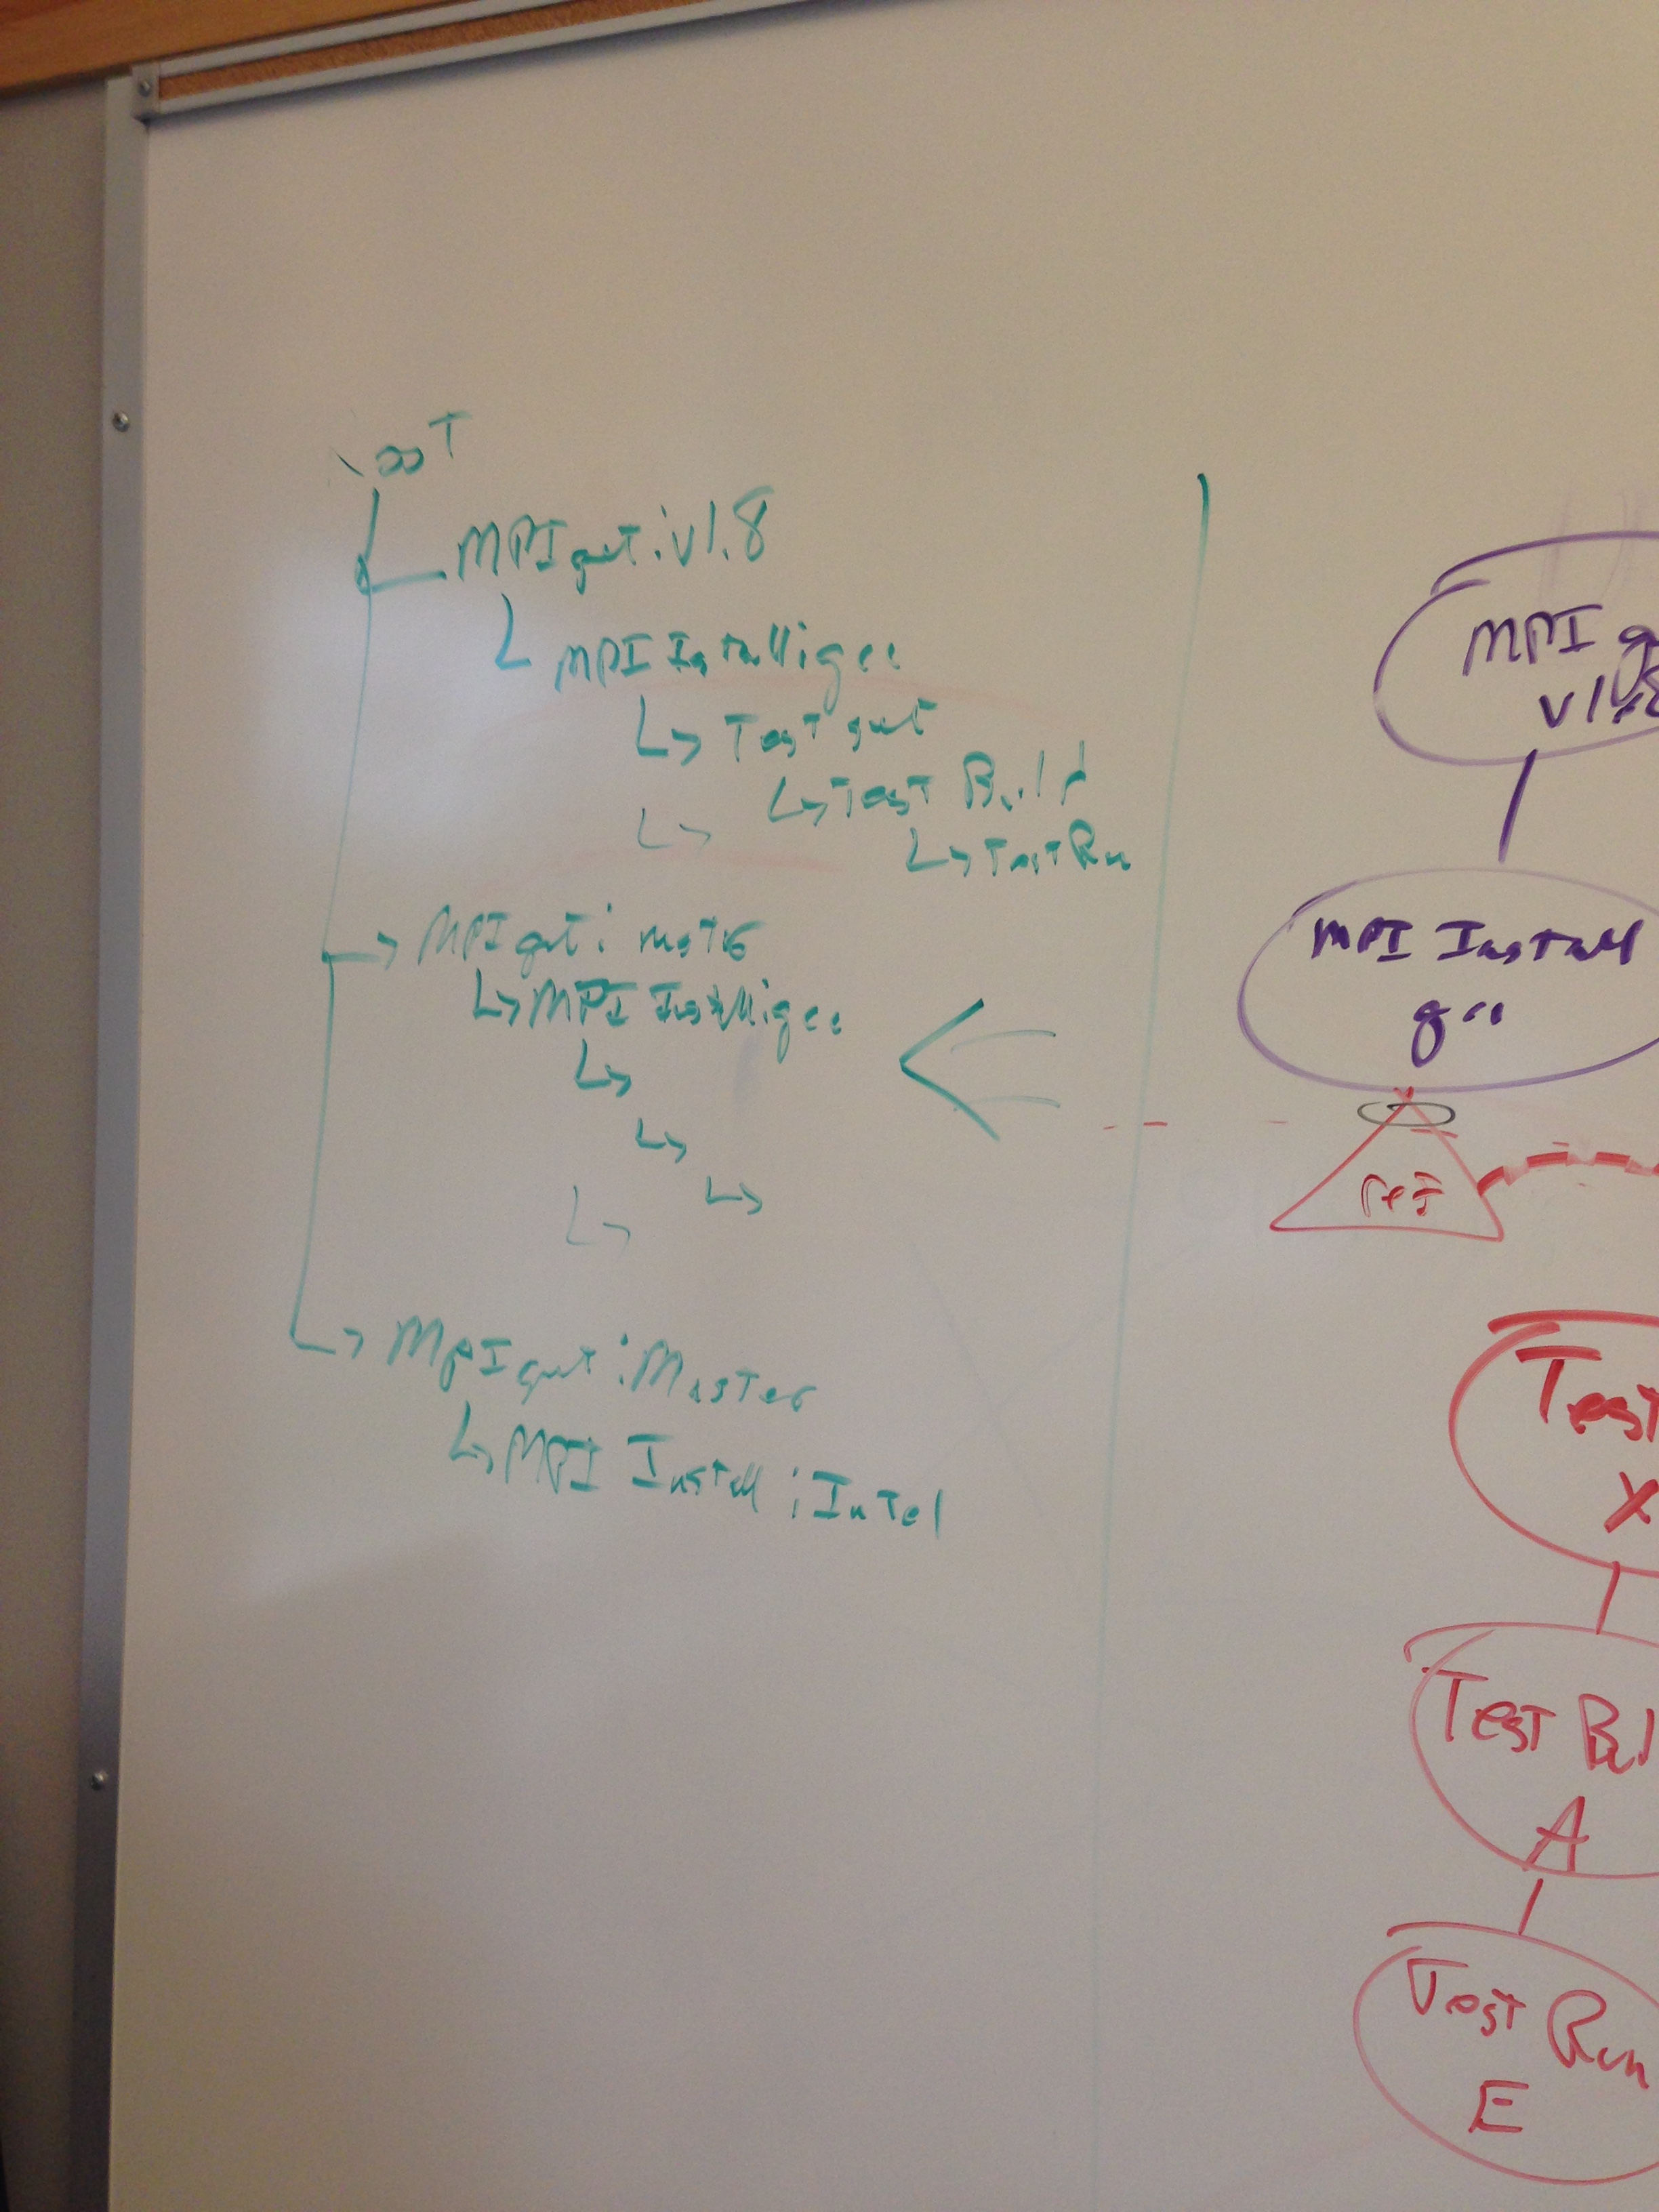 root
MPI get: v1.8
MPI Install: gcc
Test get
Test Build
Test Run
MPI get: master
MPI Install: gcc
MPI get: Master
MPI Install: Intel
MPI g
v1.8
MPI Install
gcc
ref
Test
X
Test Bui
A
Test Run
E